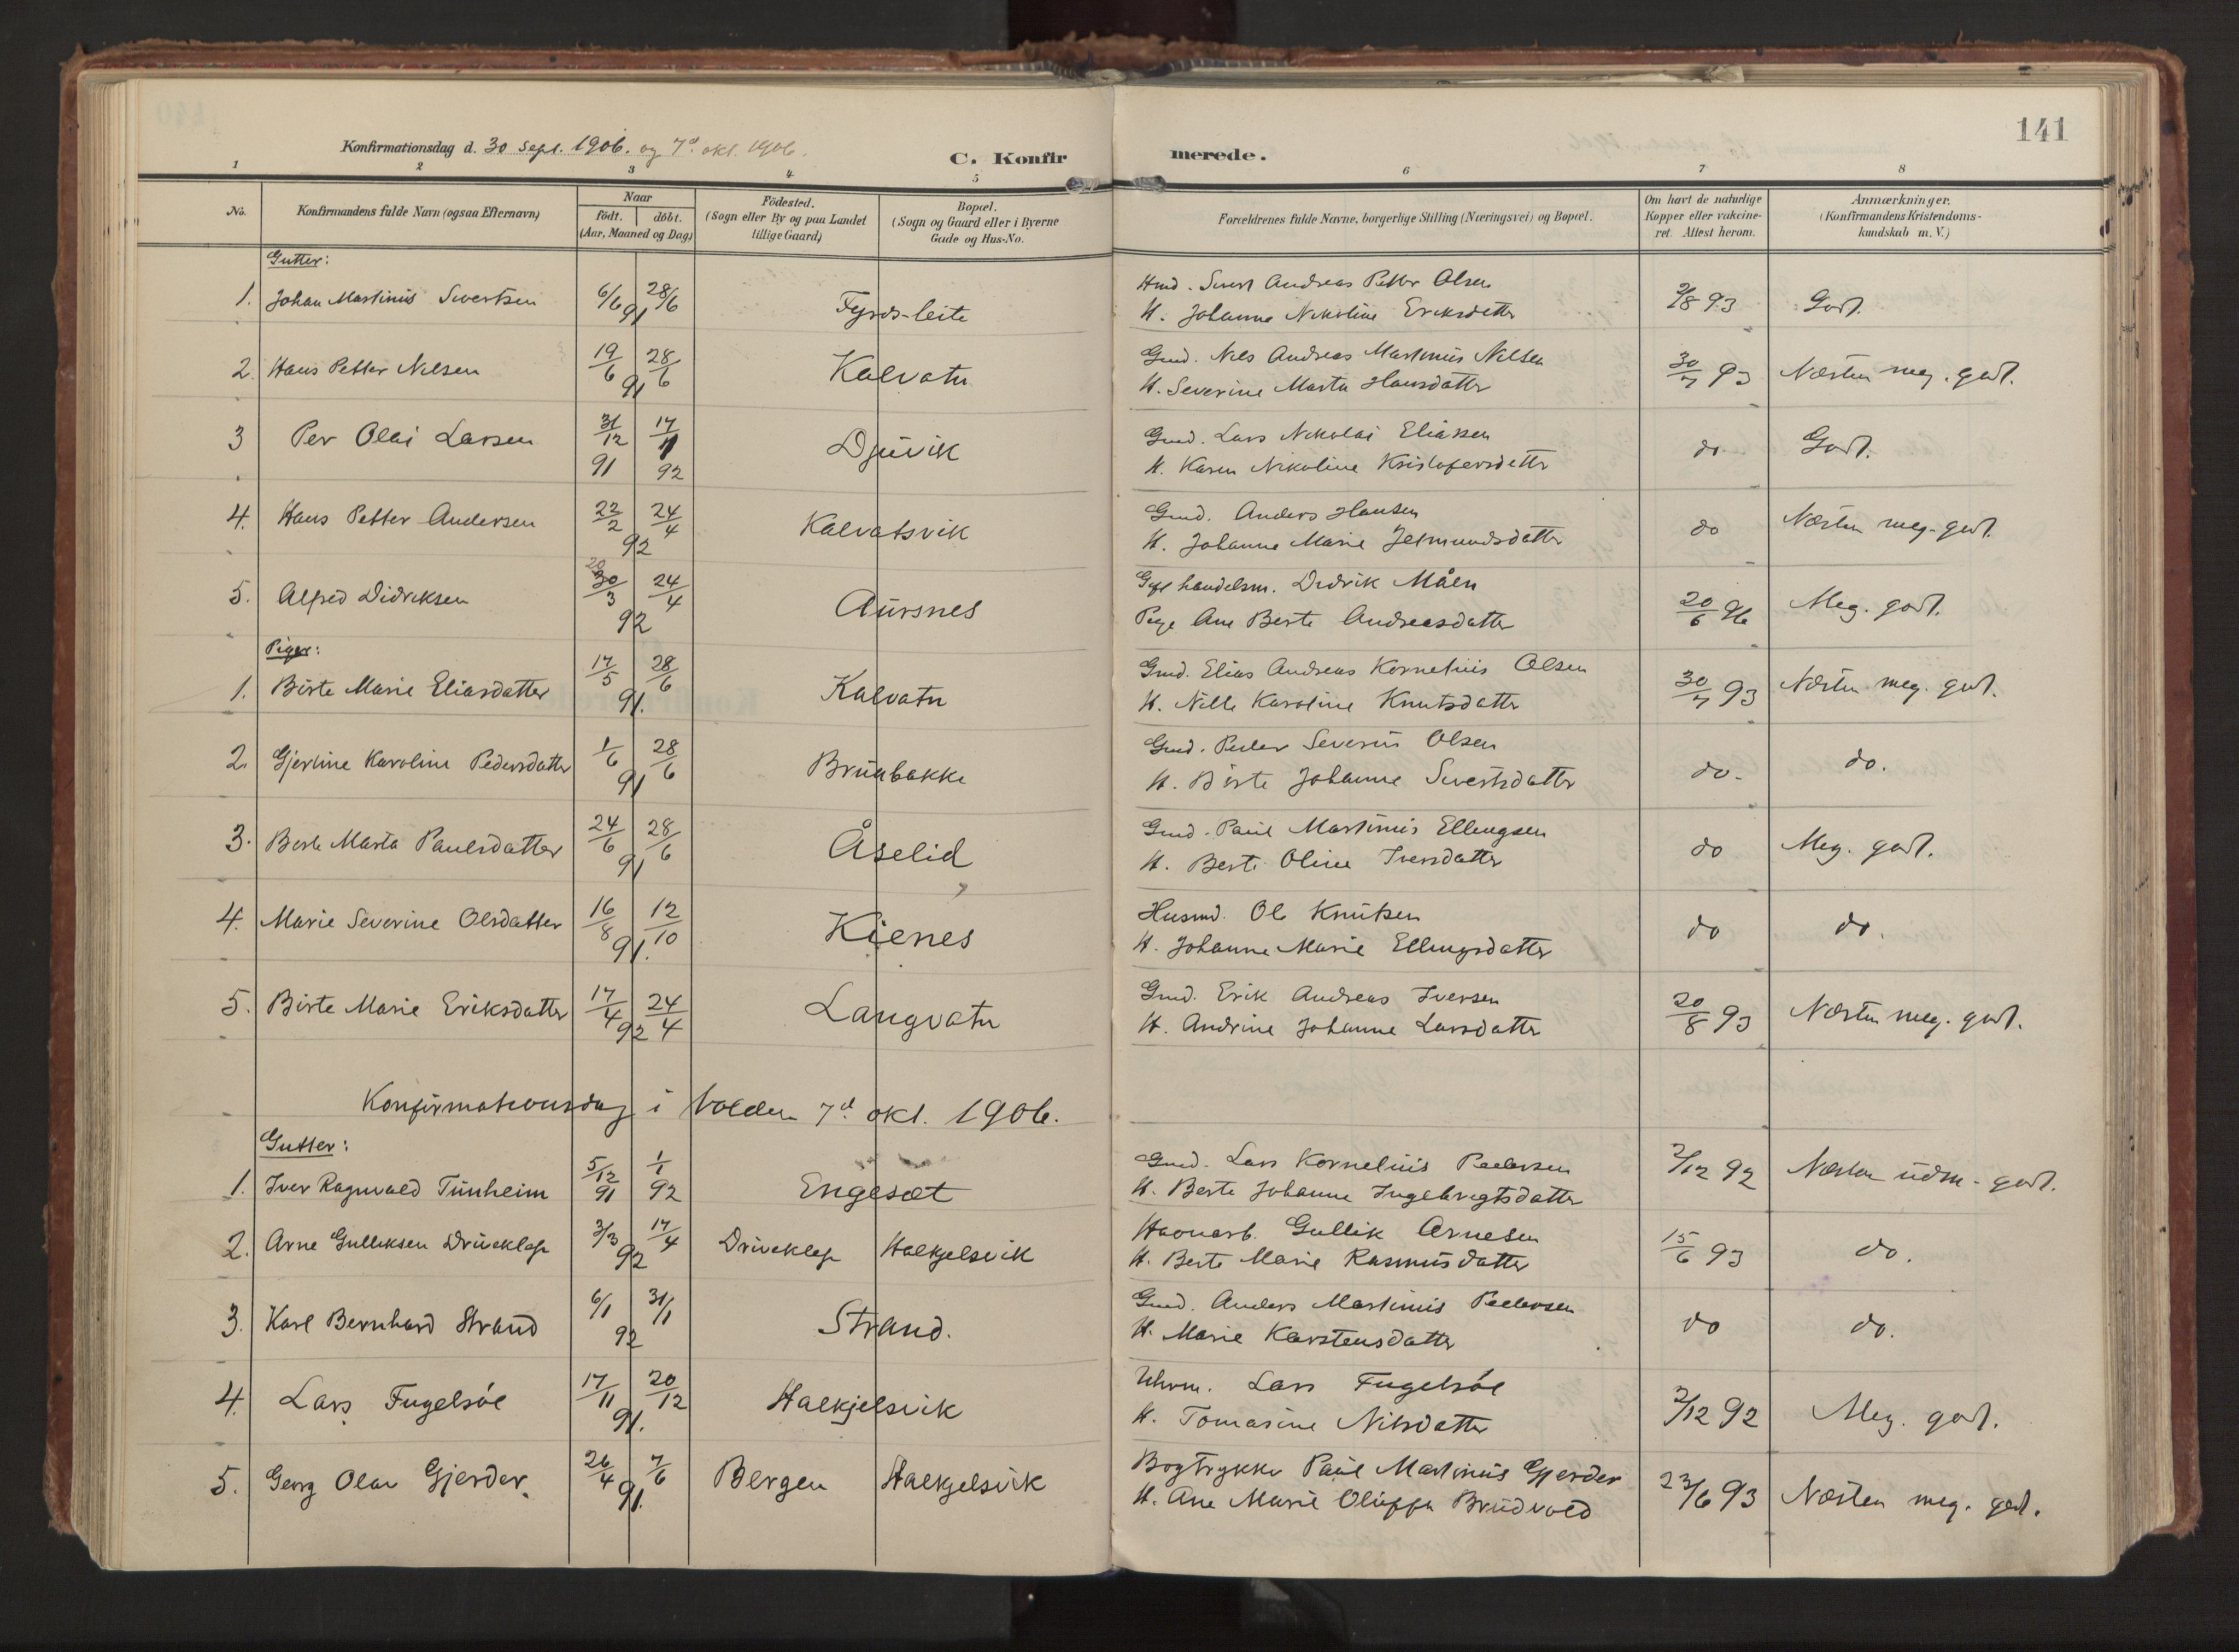 141
Konfirmationsdag d. 30 Sept. 1906. og 7d. okt. 1906.
C. Konfirmerede.
1 2 3 4 5 6 7 8
No.
Konfirmandens fulde Navn (ogsaa Efternavn)
Naar
födt. döbt.
(Aar, Maaned og Dag)
Födested.
(Sogn eller By og paa Landet
tillige Gaard)
Bopæl.
(Sogn og Gaard eller i Byerne
Gade og Hus-No.
Forældrenes fulde Navne, borgerlige Stilling (Næringsvei) og Bopæl.
Om havt de naturlige
Kopper eller vakcine-
ret. Attest herom.
Anmærkninger.
(Konfirmandens Kristendoms-
kundskab m. V.)
Gutter:
1. Johan Martinus Sivertsen 6/6 28/6 91 Fyrds-leite
Hmd. Sivert Andreas Petter Olsen
H. Johanne Nikoline Eriksdatter
2/8 93 Godt.
2. Hans Petter Nilsen 19/6 28/6 91 Kalvatn
Gmd. Nils Andreas Martinus Nilsen
H. Severine Marta Hansdatter
30/7 93 Næsten meg. godt.
3 Per Olai Larsen 31/12 91 17/1 92 Djuvik
Gmd. Lars Nikolai Eliassen
H. Karen Nikoline Kristofersdattr
do Godt.
4. Hans Petter Andersen 22/2 24/4 92 Kalvatsvik
Gmd. Anders Hansen
H. Johanne Marie Jetmundsdatter
do Næsten meg. godt.
5. Alfred Didriksen 20 30/3 24/4 92 Aursnes
Gift handelsm. Didrik Måen
Pige Ane Berte Andreasdatter
20/6 96 Meg. godt.
Piger:
1. Birte Marie Eliasdatter 17/5 28/6 91. Kalvatn
Gmd. Elias Andreas Kornelius Olsen
H. Nille Karoline Knutsdatter
30/7 93 Næsten meg. godt.
2. Gjertine Karoline Pedersdatter 1/6 28/6 91 Brunbakke
Gmd. Peder Severin Olsen
H. Birte Johanne Sivertsdatter
do. do.
3. Berte Marta Paulsdatter 24/6 28/6 91 Åselid
Gmd. Paul Martinus Ellingsen
H. Berte Oline Iversdatter
do Meg. godt.
4. Marie Severine Olsdatter 16/8 12/10 91. Kienes
Husmd. Ole Knutsen
H. Johanne Marie Ellingsdatter
do do.
5. Birte Marie Eriksdatter 17/4 24/4 92 Langvatn
Gmd. Erik Andreas Iversen
H. Andrine Johanne Larsdatter
20/8 93 Næsten meg. godt.
Konfirmationsdag i Volden 7d okt. 1906.
Gutter:
1. Iver Ragnvald Tunheim 5/12 91 1/1 92 Engeset
Gmd. Lars Kornelius Pedersen
H. Berte Johanne Ingebrigtsdatter
2/12 92 Næsten udm. godt.
2. Arne Gulliksen Driveklep 3/3 17/4 92 Driveklep Halkjelsvik
Havnarb. Gullik Arnesen
H. Berte Marie Rasmusdatter
15/6 93 do.
3. Karl Bernhard Strand 6/1 31/1 92 Strand.
Gmd. Anders Martinus Pedersen
H. Marie Karstensdatter
do do.
4. Lars Fugelsöe 17/11 20/12 91. Halkjelsvik
Uhrm. Lars Fugelsöe
H. Tomasine Nilsdatter
2/12 92 Meg. godt.
5. Georg Olav Gjerder. 26/4 7/6 91. Bergen Halkjelsvik
Bogtrykker Paul Martinus Gjerder
H. Ane Marie Oluffa Brudvold
23/6 93 Næsten meg. godt.